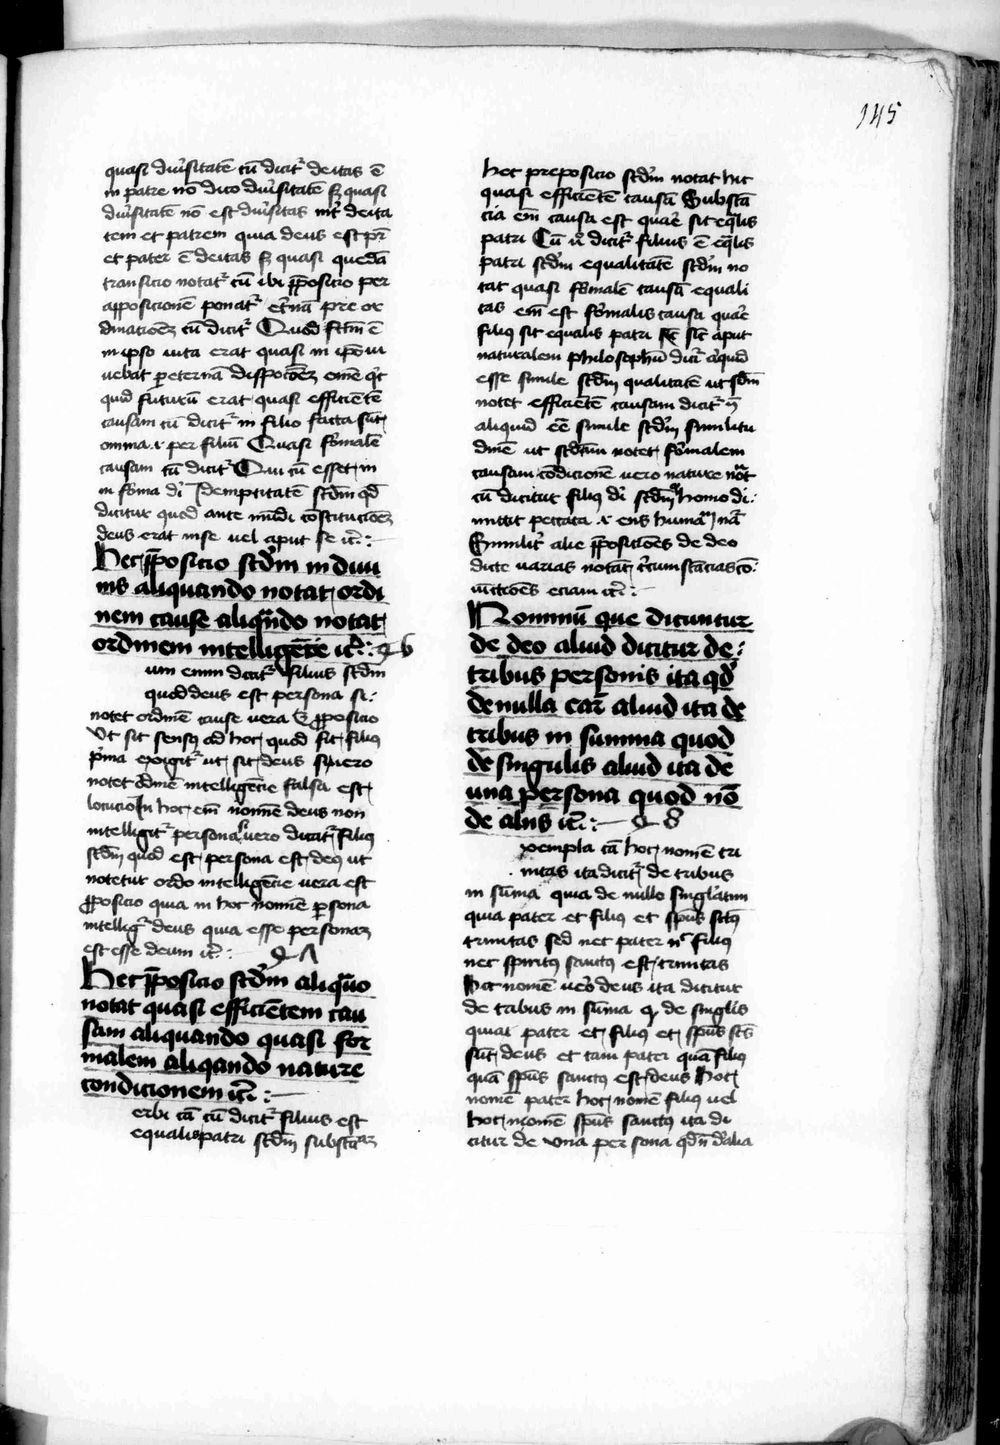 145
quasi diu'sitatē cū dicit' deitas ē
in patre nō dico diu'sitatē sꝫ quasi
diu'sitatē nō est diu'sitas int' deita
tem et patrem quia deus est pr̄
et pater ē deitas sꝫ quasi quedā
transicio notat' cū ibi p̄posicio per
apposicionē ponat' et'nā pre or
dinacionē cū dicit' Quod fctm̄ ē
in ipso uita erat quasi in ip̄o ui
uebat p eternā dispocōeꝫ
quid futurū erat quasi efficiētē
causam cū dicit' in filio facta sūt
omnia .i. per filiū Quasi fo'malē
causam cū dicit' Qui cū esset in
in fo'ma di' Idemptitatē scdm̄ qd̄
dicitur quod ante mūdi cōstitucōeꝫ
deus erat in se uel aput se ic̄.
Hec p̄posicio scdm̄ in diui
nis aliquando notat ordi
nem cause aliqn̄do notat
ordinem intelligēcie ic̄.
um enim dicit' filius scdm
quod deus est persona si
notet ordinē cause uera ē p̄posicio
Vt sit sensꝰ ad hoc quod sit filiꝰ
p'ma exigit' ut sit deus si uero
notet ordinē intelligēcie falsa est
locucio In hoc em̄ nomine deus non
intelligit' persona si uero dicat' filiꝰ
scdm̄ quod est persona est deꝰ ut
notetur ordo intelligēcie uera est
p̄posicio quia in hoc nomine p̱sona
intellig' deus quia esse personaꝫ
est esse deum ic̄.
Hec p̄posicio scdm̄ aliqn̄do
notat quasi efficiētem cau
sam aliquando quasi for
malem aliqando nature
condicionem ic̄.
erbi cā cū dicit' filius est
equalis patri scdm̄ substāciaꝫ
hec preposicio scdm̄ notat hic
quasi efficiētē causā Substā
cia em̄ causa est quare sit eq̄lis
patri Cū u° dicit' filius ē eq̄lis
patri scdm̄ equalitatē scdm̄ no
tat quasi fo'malē causā equali
tas em̄ est fo'malis causa quare
filiꝰ sit equalis patri sic̄ aput
naturalem philosophū dicit' aliquid
esse simile scdm̄ qualitatē ut scdm̄
notet efficiētē causam dicit' n̄
aliquid ēē simile scdm̄ similitu
dinē ut scdum notet fo'malem
causam cōdicionē uero nature nōt
cū dicitur filiꝰ di' scdm̄ homo di
mittit peccata .i. ens humanā nā
Similit' alie p̄posicōēs de deo
dicte uarias notāt circumstācias cō
iūctiōēs eciam ic̄.
Nominū que dicuntur
de deo aliud dicitur de
tribus personis ita qd̄
de nulla eaꝝ aliud ita de
tribus in summa quod
de singulis aliud ita de
una persona quod nō
de aliis ic̄.
xempla cā hoc nomē tri
nitas ita dicit' de tribus
in sūma quia de nullo singlatim
quia pater et filiꝰ et spūs sctꝰ
trinitas sed nec pater n' filiꝰ
nec spiritꝰ sanctꝰ est trinitas
Hec nomē uero deus ita dicitur
de tribus in sūma ꝙ de singlis
quia pater et filiꝰ et spūs sctꝰ
sūt deus et tam pater quā filiꝰ
quā spūs sanctꝰ est deus Hoc
nomē pater hoc nomē filiꝰ uel
hoc nomē spūs sanctꝰ ita di
citur de una per sona qd̄ n̄ de alia